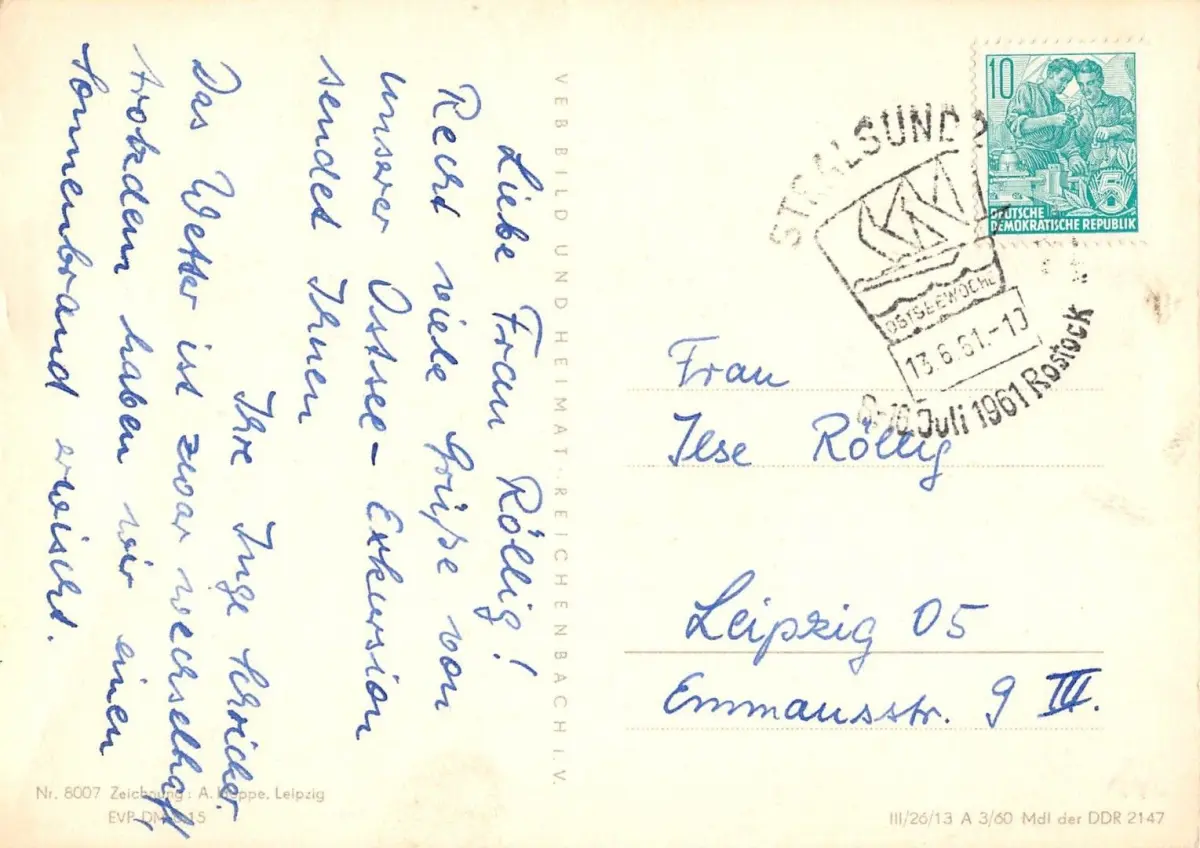 Liebe Frau Röllig!
Recht viele Grüße von
unserer Ostsee-Exkursion
sendet Ihnen
Ihre Inge Schricker.
Das Wetter ist zwar wechselhaft,
trotzdem haben wir einen
Sonnenbrand erwischt.
VEB BILD UND HEIMAT · REICHENBACH I. V.
10
5
DEUTSCHE
DEMOKRATISCHE REPUBLIK
STRALSUND 2
OSTSEEWOCHE
13.6.61.-10
Juli 1961 Rostock
Frau
Ilse Röllig
Leipzig O5
Emmausstr. 9 III.
Nr. 8007 Zeichnung: A. Hoppe, Leipzig
EVP DM 0.15
III/26/13 A 3/60 MdI der DDR 2147